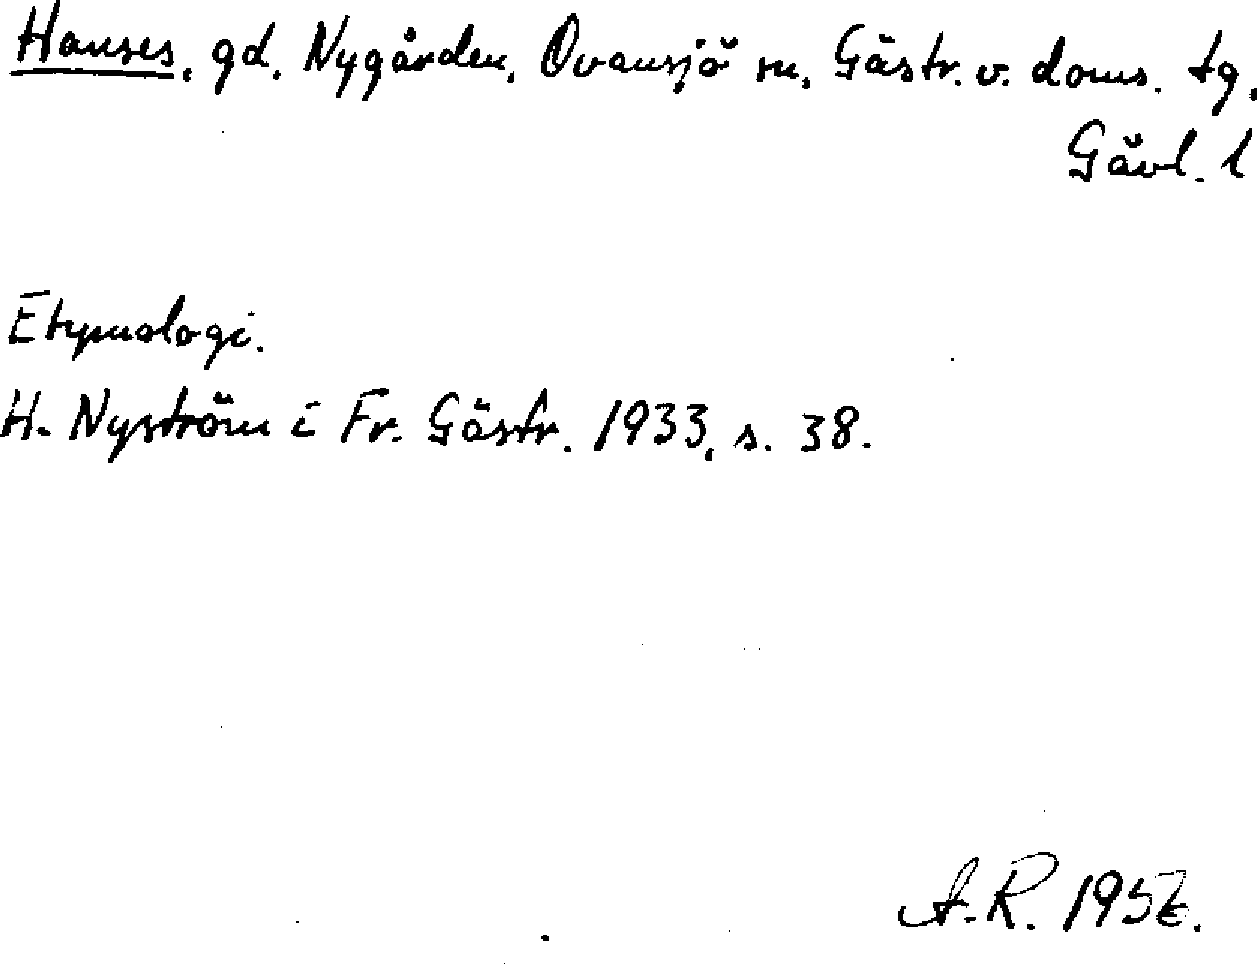 Hanses, gd, Nygården, Ovansjö sn, Gästr. v. doms. tg,
Gävl. l
Etymologi.
H. Nyström i Fr. Gästr. 1933, s. 38.
A.R.